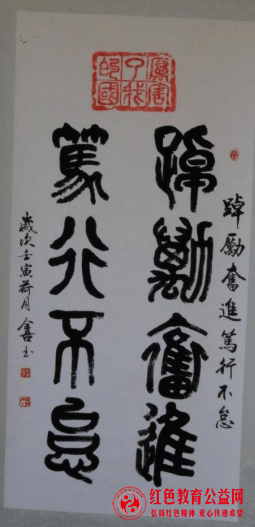 厲害
了我
的國
踔勵奮進篤行不怠
踔勵奮進
篤行不怠
歲次壬寅荷月
红色教育公益网
弘扬红色精神 爱心传递希望